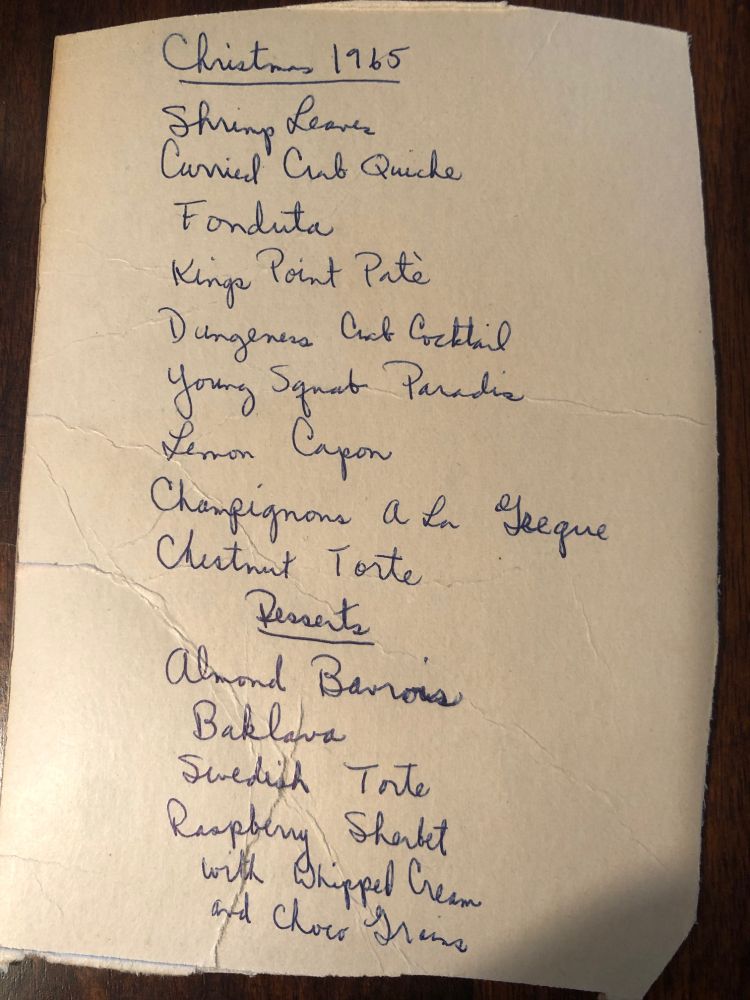 Christmas 1965
Shrimp Leaves
Curried Crab Quiche
Fonduta
Kings Point Patè
Dungeness Crab Cocktail
Young Squab Paradis
Lemon Capon
Champignons A La Grecque
Chestnut Torte
Desserts
Almond Bavrois
Baklava
Swedish Torte
Raspberry Sherbet
with Whipped Cream
and Choco Grains